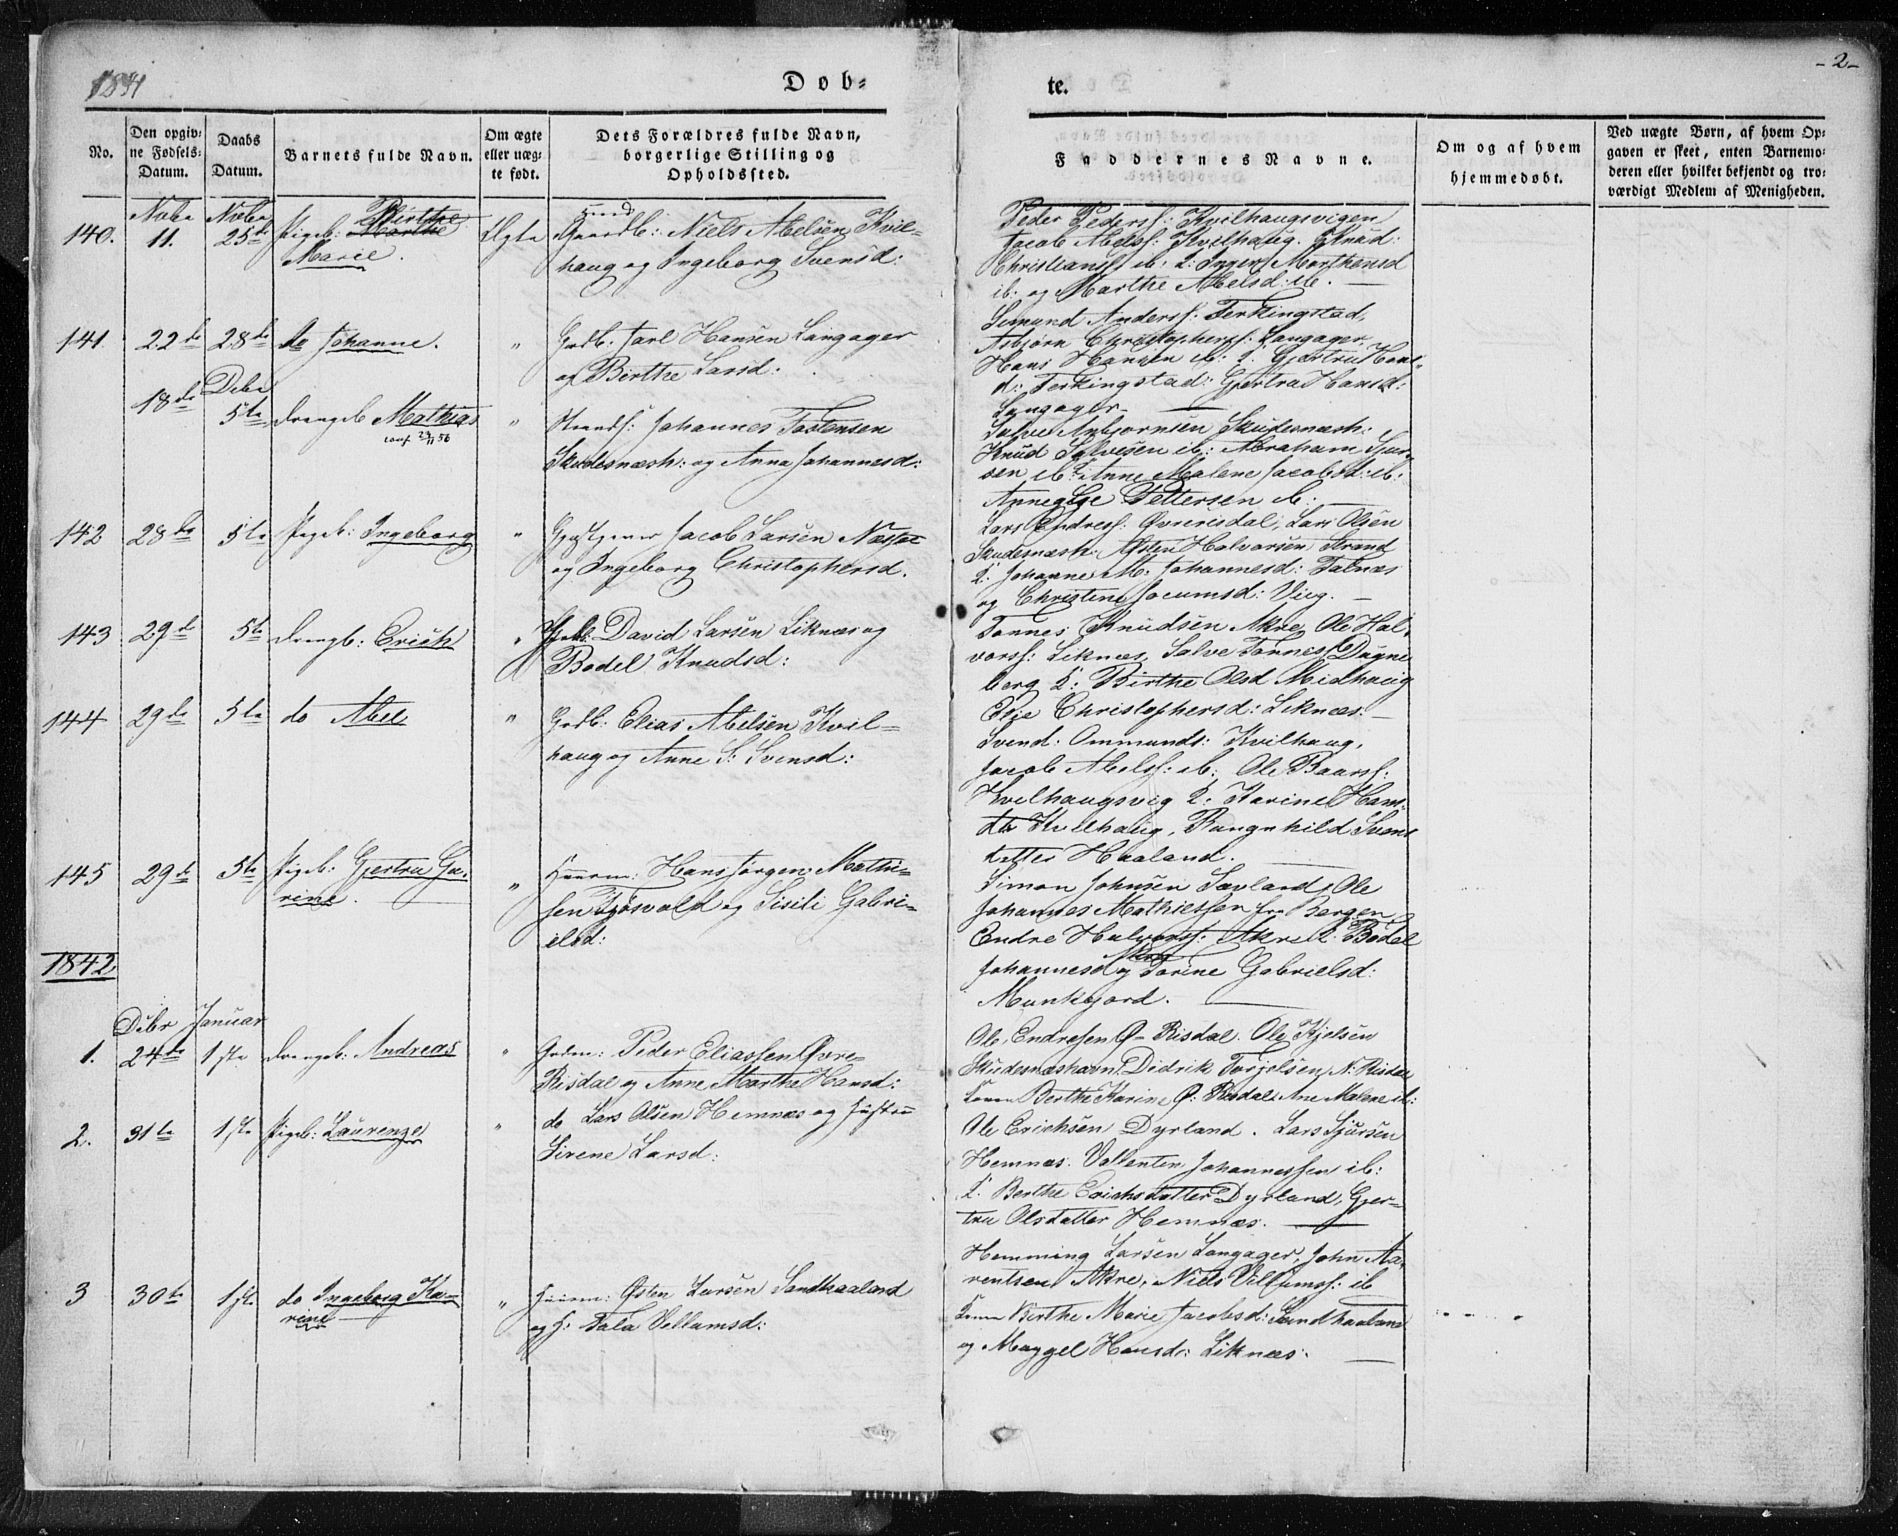 1841
Døb=
te.
- 2 -
No.
Den opgiv=
ne Fødsels=
Datum.
Daabs
Datum.
Barnets fulde Navn.
Om ægte
eller uæg=
te født.
Dets Forældres fulde Navn,
borgerlige Stilling og
Opholdssted.
Faddernes Navne.
Om og af hvem
hjemmedøbt.
Ved uægte Børn, af hvem Op=
gaven er skeet, enten Barnemo=
deren eller hvilket bekjendt og tro=
værdigt Medlem af Menigheden.
140.
11.
25de
Pigeb: Marthe
Birthe
Marie.
Ægte
Gaardb: Niels Abelsen Kvil=
haug og Ingeborg Svensd:
Peder Peders: Kvilhaugsvigen
Jacob Abels: Kvilhaug. Knud
Christians: ib: Q: Inger Marthensd
ib: og Marthe Abelsd: ib. —
141
22de
28de
do Johanne.
"
Gadb: Jarl Hansen Langager
og Birthe Larsd:
Simund Anders: Ferkingstad,
Asbjørn Christophers: Langager,
Hans Hansen ib: Q: Gjertru Hans=
d: Ferkingstad: Gjertru Hansd:
Langager —
18de
Debr
5te
Drengeb Mathias
conf
"
Strands: Johannes Tostensen
Skudesnæsh: og Anna Johannesd:
Salve Anbjørnsen Skudesnæsh:
Knud Salvesen ib: Abraham Sjur=
sen ib: Anne Malene Jacobsd: ib:
Pettersen ib: —
142
28de
5te
Pigeb: Ingeborg
"
Gjæstgiver Jacob Larsen Næsset
og Ingeborg Christophersd.
Lars Endres: Øvrerisdal, Lars Olsen
Skudesnæsh: Østen Halvorsen Strand
Q: Johanne M: Johannesd: Falnæs
og Christine Jocumsd: Vieg. —
143
29de
5te
Drengb: Erich
"
Gadb: David Larsen Liknæs og
Bodel Knudsd:
Tønnes Knudsen Akre, Ole Hal=
vors: Liknæs, Salve Tønnes: Dagne
berg Q: Birthe Olsd Midhaug
Elje Christophersd: Liknæs: —
144
29de
5te
do Abel
"
Gadb: Elias Abelsen Kvil=
haug og Anne S: Svensd:
Svend: Ommunds: Kvilhaug,
Jacob Abels: ib: Ole Baars:
Kvilhaugsvig Q: Karine Hans=
dr Kvilhaug, Rangnhild Svens
datter Haaland. —
145
29de
5te
Pigeb: Gjertru Ga=
rine.
"
Huusm: Hans Jørgen Mathi=
sen Tjøsvold og Sisili Gabri=
elsd:
Simon Johnsen Sævland, Ole
Johannes Mathiessen fra Bergen
Endre Halvors: Akre Q: Bodel
Johannesd og Torine Gabrielsd:
Munkejord. —
1842
Debr
Januar
1.
24de
1ste
Drengeb: Andreas
"
Gadm: Peder Eliassen Øvre=
Risdal og Anne Marthe Hansd:
Ole Endresen Ø= Risdal. Ole Kjelsen
Skudesnæshavn, Didrik Torjelsen N: Risdal
Konen Berthe Karine Ø: Risdal, Ane Malene ib:
2.
31te
1ste
Pigeb: Laurenze
"
do Lars Olsen Hemnæs og Hustru
Sirene Larsd:
Ole Erichsen Dyrland. Lars Sjursen
Hemnæs. Vallentin Johannessen ib:
Q: Berthe Erichsdatter Dyrland, Gjer=
tru Olsdatter Hemnæs. —
3
30te
1ste
do Ingeborg Ka=
rine —
"
Huusm: Østen Larsen Sandhaaland
og H: Tala Vellumsd:
Hemming Larsen Langager, John Aa=
rentsen Akre, Niels Villums: ib
Konen Berthe Marie Jacobsd: Sandhaaland
og Maggel Hansd: Liknæs. —